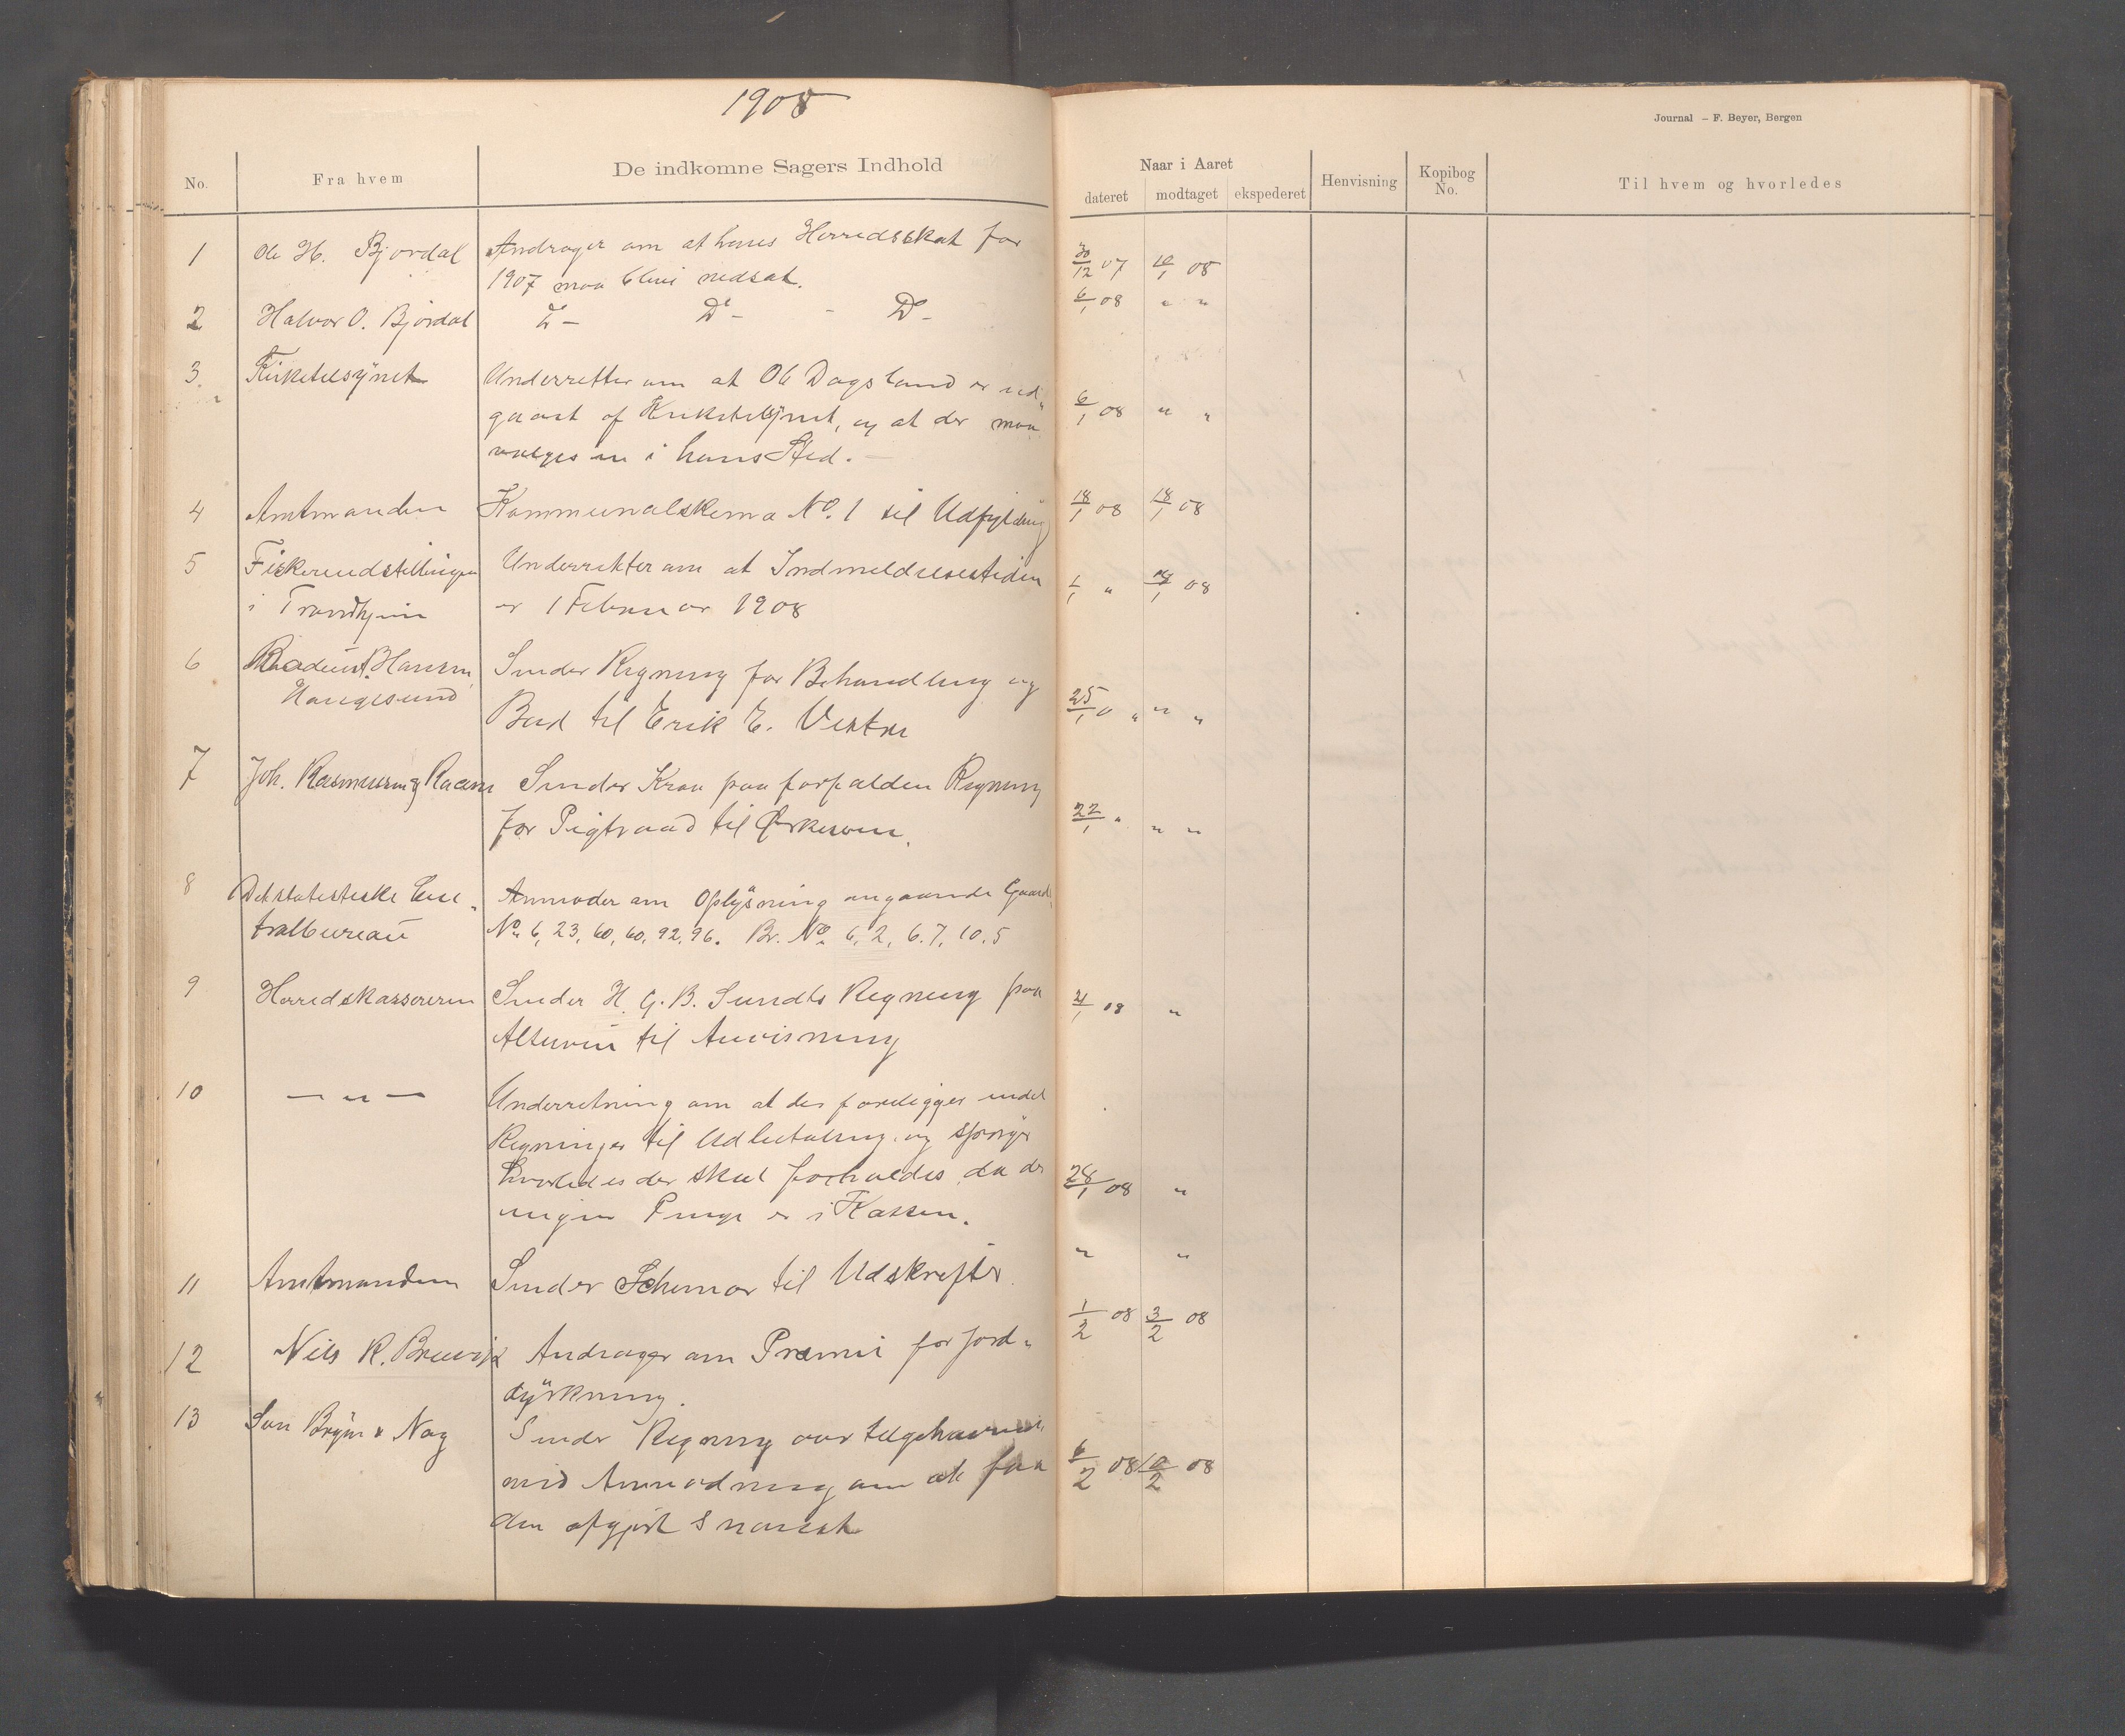 1908
Journal – F. Beyer, Bergen
No.
Fra hvem
De indkomne Sagers Indhold
Naar i Aaret
dateret
modtaget
ekspederet
Henvisning
Kopibog No.
Til hvem og hvorledes
1 Ole H. Bjordal Androger om at hans Herredsskat for 30/12 07 10/1 08
1907 maa blive nedsat.
2 Halvor O. Bjordal D- Do- - Do- 6/1 08 " "
3. Kirketilsynet Underretter om at Ole Dagsland er ud„
gaaet af Kirketilsynet, og at der maa 6/1 08 " "
vælges en i hans Sted. –
4 Amtmanden Kommunalskema No. 1 til Udfylding 18/1 08 18/1 08
5 Fiskeriudstillingen Underretter om at Indmeldelsestiden 1/1 " 08
i Trondhjem er 1 Februar 1908
6 Hansen, Sender Regning for Behandling og
Haugesund Bad til Erik E. Vestre 25/1 0 " " "
7 Joh. Rasmussen & Raaen Sender Krav paa forfalden Regning
for Pigtraad til 22/1 " " "
8 Det statistiske Cen„ Anmoder om Oplysning angaaende Gaards
tralbureau No. 6, 23, 60, 60, 92, 96. Br. No. 6, 2, 6. 7, 10. 5
9 Herredskassereren Sender H. G. B. Sundts Regning paa 08 "
Altervin til Anvisning
10 — " — Underretning om at der foreligger endel
Regninger til Udbetaling og spørger
hvorledes der skal forholdes da der 28/1 08 "
ingen Penge er i Kassen.
11 Amtmanden Sender Schemar til Udskrifter. " "
12 Nils R. Breivik Androger om Præmie for Jord„ 1/2 08 3/2 08
dyrkning.
13 Søn Brynn & Nag Sender Regning over tilgehavende
med Anmodning om at faa 6/2 08 10/2 08
den afgjort snarest